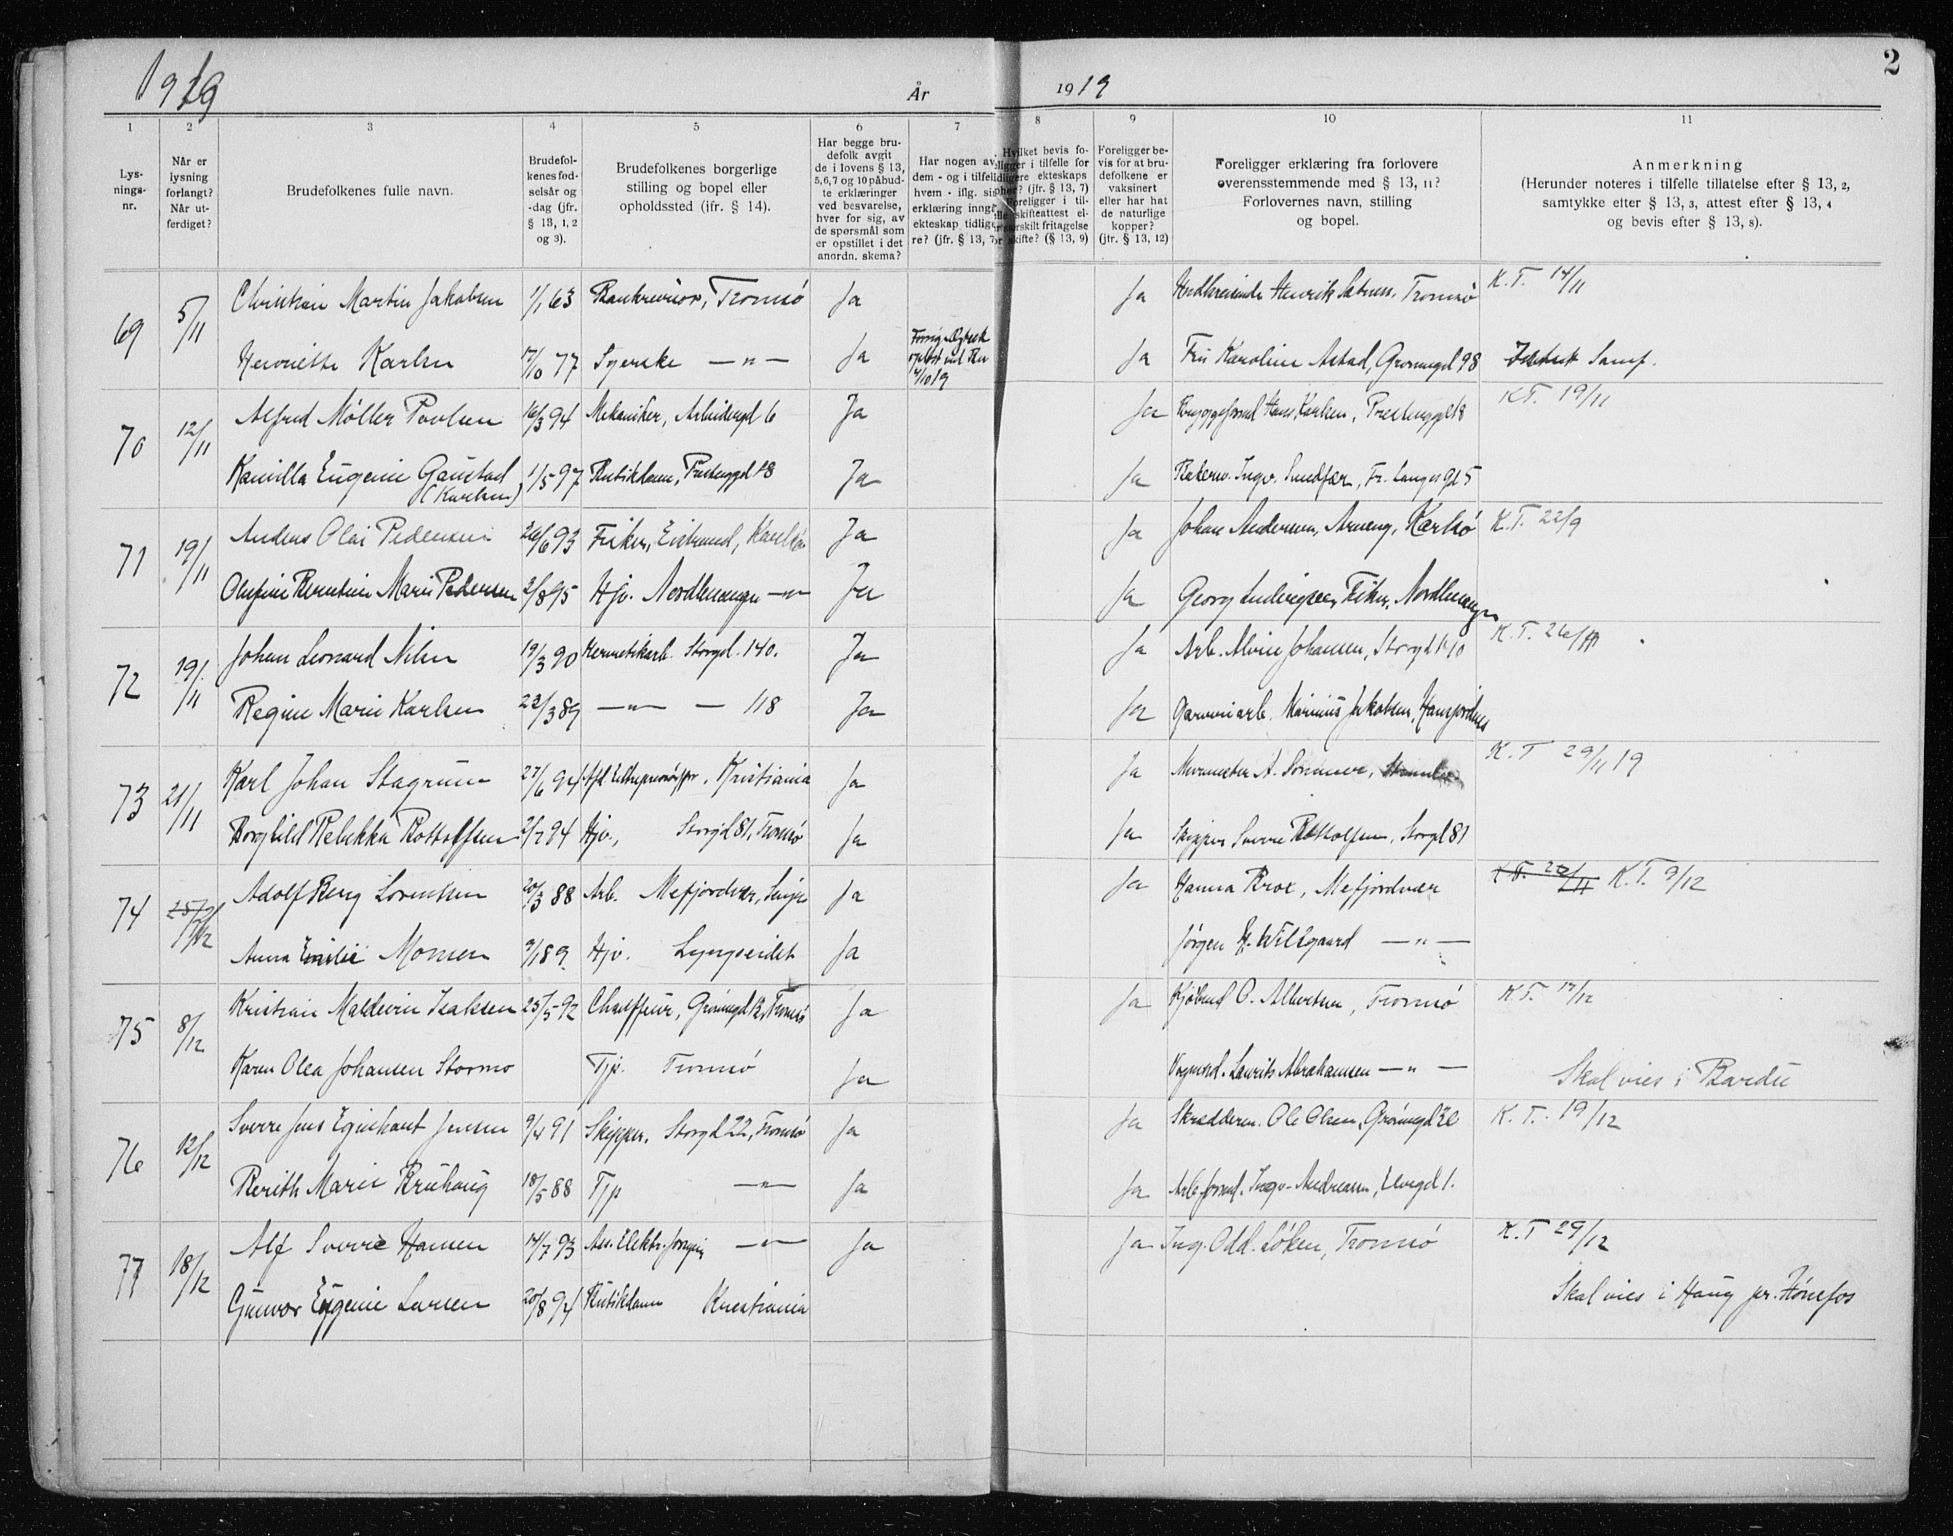 1919 År 1919 2
1 2 3 4 5 6 7 8 9 10 11
Lys-
nings-
nr.
Når er
lysning
forlangt?
Når ut-
ferdiget?
Brudefolkenes fulle navn.
Brudefol-
kenes fød-
selsår og
-dag (jfr.
§ 13, 1, 2
og 3).
Brudefolkenes borgerlige
stilling og bopel eller
opholdssted (jfr. § 14).
Har begge bru-
defolk avgit
de i lovens § 13,
5, 6, 7 og 10 påbud-
te erklæringer
ved besvarelse,
hver for sig, av
de spørsmål som
er opstillet i det
anordn. skema?
Har nogen av
dem - og i tilfel
hvem - iflg. si
erklæring inng
ekteskap tidlig
re? (jfr. § 13, 7
Hvilket bevis fo-
ligger i tilfelle for
ekteskaps
(jfr. § 13, 7)
Foreligger i til-
skifteattest el-
særskilt fritagelse
skifte? (§ 13, 9)
Foreligger be-
vis for at bru-
defolkene er
vaksinert
eller har hat
de naturlige
kopper?
(jfr. § 13, 12)
Foreligger erklæring fra forlovere
overensstemmende med § 13, 11?
Forlovernes navn, stilling
og bopel.
Anmerkning
(Herunder noteres i tilfelle tillatelse efter § 13, 2,
samtykke etter § 13, 3, attest efter § 13, 4
og bevis efter § 13, 8).
69 5/11 Christian Martin Jakobsen 1/1 63 Bankrevisor, Tromsö Ja Ja Henrik Sætness, Tromsö K.T. 14/11
Henriette Karlsen 17/10 77 Syerske —"— Ja Ja Fru Karoline Astad, Grönnegd 98 Samf.
70 12/11 Alfred Möller Povlsen 16/3 94 Mekaniker, Arbeidergd 6 Ja Ja Bryggeformd Hans Karlsen, Prestenggd 18 K.T. 19/11
Kamilla Eugenie Gaustad 1/5 97 Butikdame, Prestenggd 18 Ja Ja Ingv. Sundfær, Fr. Langes gd 5
(Karlsen)
71 19/11 Anders Olai Pedersen 26/6 93 Fisker, Karlsö Ja Ja Johan Andersen, Arneng, Karlsö K.T. 22/9
Olufine Berntine Marie Pedersen 2/8 95 Hjv. Nordlenangen —"— Ja Ja Georg Ludvigsen, Fisker, Nordlenangen
72 19/11 Johan Leonard Nilsen 19/3 90 Hermetikarb. Storgd. 140. Ja Ja Arb. Alvin Johansen, Storgd 140 K.T. 26/11
Regine Marie Karlsen 23/3 89 —"— — 118 Ja Ja Garveriarb. Marinius Jakobsen, Hansjordnes
73 21/11 Karl Johan Stagrum 27/6 94 Kristiania Ja Ja Murmester A. Sommer, K.T 29/11 19
Borghild Rebekka Rottolfsen 2/7 94 Hjv., Storgd 81, Tromsö Ja Ja Skipper Sverre Rottolfsen, Storgd 81
74 Adolf Berg Lorentsen 20/3 88 Arb. Mefjordvær, Senjen Ja Ja Hanna Broe, Mefjordvær K.T. 22/11 K.T. 9/12
Anna Emilie Monsen 9/1 89. Hjv. Lyngseidet Ja Jörgen H. Wilsgaard —"—
75 8/12 Kristian Maldevin Isaksen 25/5 92 Chauffeur, Grönnegd 12, Tromsö Ja Ja Kjöbmd O. Albertsen, Tromsö K.T. 17/12
Karen Olea Johansen Stormo Tjp. Tromsö Ja Vognmd. Laurits Abrahamsen —"— Skal vies i Bardu
76 12/12 Sverre Jens Eginhart Jensen 9/4 91 Skipper. Storgd 22, Tromsö Ja Ja Skrædderm. Ole Olsen, Grönnegd K.T. 19/12
Berith Marie Bruhaug 18/5 88 Tjp —"— Ja Ja Arb.formd. Ingv. Andreasen, Elvegd 1.
77 18/12 Alf Sverre Hansen 14/7 93 Ass. Elektr.forsyning —"— Ja Ja Ing. Odd. Löken, Tromsö K.T 29/12
Gunvor Eugenie Larsen 20/8 94 Butikdame Kristiania Skal vies i Haug pr. Hönefos